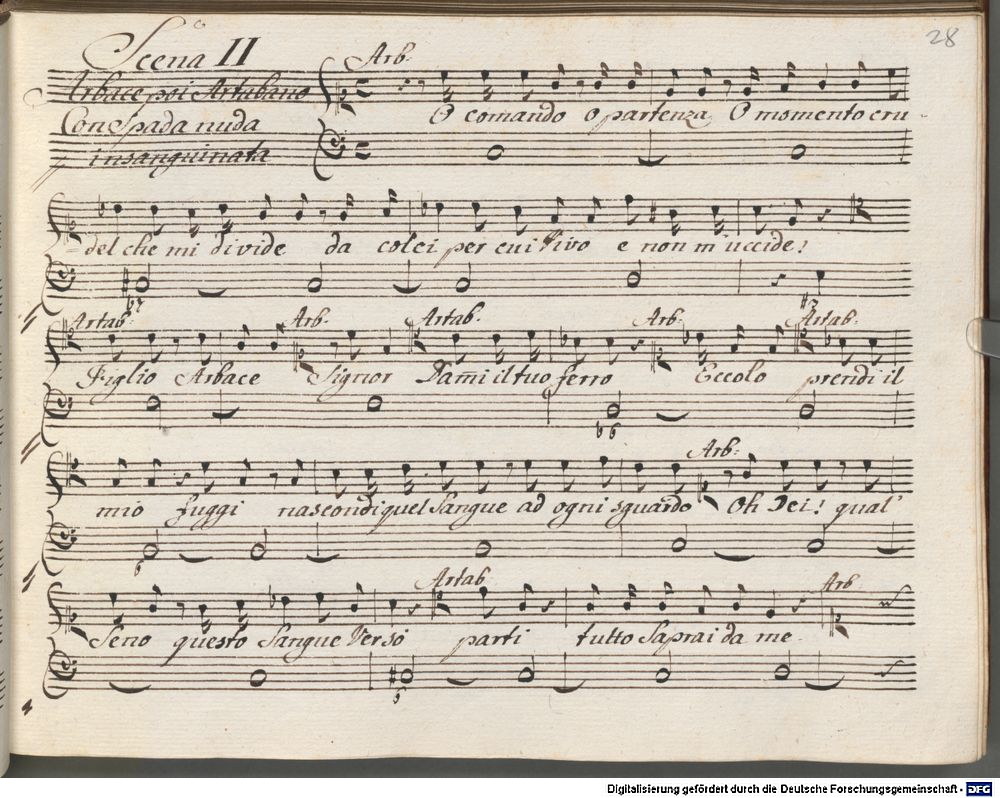 28
Scena II
Arb:
Arbace poi Artabano
Con Spada nuda
insanguinata
O comando o partenza O momento cru-
del che mi divide da colei per cui Vivo e non m'uccide!
b7
#3
Artab: Arb: Artab: Arb: Artab:
Figlio Arbace Signor Dam̄i il tuo ferro Eccolo prendi il
b6
Arb:
mio fuggi nascondi quel Sangue ad ogni sguardo Oh Dei! qual'
6
Artab Arb
Seno questo Sangue Versò parti tutto Saprai da me.
5
Digitalisierung gefördert durch die Deutsche Forschungsgemeinschaft - DFG